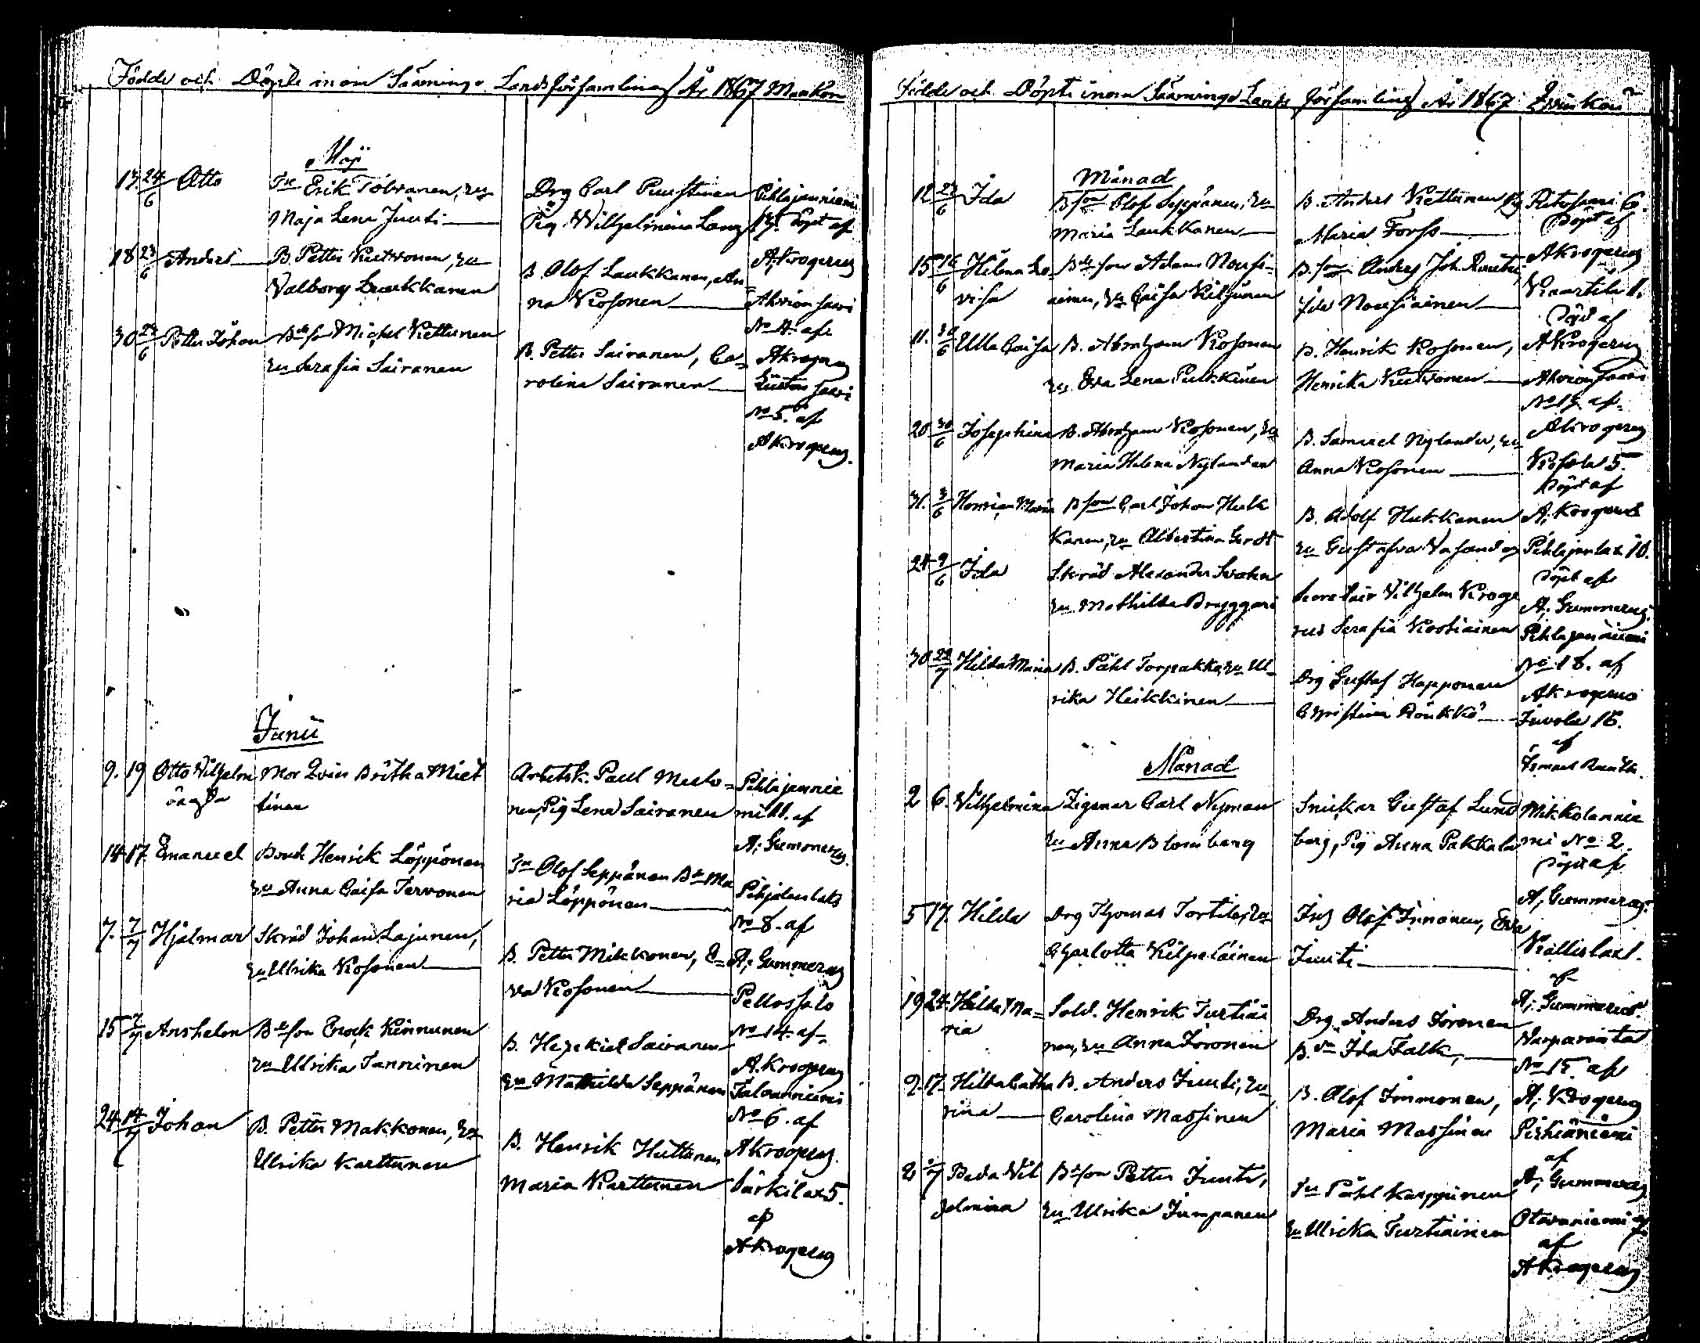 Födde och Döpte inom Säminge Landsförsamling År 1867 Mankön
Maji
17 24/6 Otto
Erik Tolvanen, Hu
Maja Lena Juuti
Drg Carl Puustinen
Pig. Wilhelmina Lang
Pihlajaniemi
Döpt af
A. Krogerus
18 23/6 Anders
B. Petter Kietvonen, Hu
Valborg Laukkanen
B. Olof Laukkanen, An-
na Kosonen
Ahvionsaari
No 4. af
A Krogerus
30 23/6 Petter Johan
Bdeson Michel Kettunen
Hu Serafia Sairanen
B. Petter Sairanen, Ca-
rolina Sairanen
No 5. af
A Krogerus.
Junii
9. 19 Otto Vilhelm
oägta
Mor Qvin Britha Miet-
tinen
Arbetsk. Paul
nen, Pig Lena Sairanen
Pihlajanie
mi af
A. Gummerus.
14 17 Emanuel
Bond Henrik Löppönen
Hu Anna Caisa Tervonen
Olof Seppänen Ma
ria Löppönen
Pihlajalaks
No 8. af
A. Gummerus
7. 7/7 Hjalmar
Skräd Johan Lajunen,
Hu Ulrika Kosonen
B. Petter Mikkonen, E-
va Kosonen
Pellossalo
No 14. af
A. Krogerus
15 7/7 Anshelm
Bdeson Enock Kinnunen
Hu Ulrika Tanninen
B. Hezekiel Sairanen
Hu Mathilda Seppänen
Talvaniemi
No 6. af
A Krogerus
24 14/7 Johan
B. Petter Makkonen, Hu
Ulrika Karttunen
B. Henrik Huttunen
Maria Karttunen
Särkilax 5.
af
A Krogerus
Födde och Döpte inom Säminge Lands församling År 1867 Qvinkön
Månad
12 23/6 Ida
Bson Olof Seppänen, Hu
Maria Laukkanen
B. Anders Kettunen, Pig
Maria Forss
Ritosaari 6.
Döpt af
A Krogerus
15 16/6 Helena Lo
visa
Bdeson Adam Nousi-
ainen, Hu Caisa Kiljunen
Bson Anders Joh. Rautio,
Ida Nousiainen
Kaartila 1.
Döpt af
A Krogerus
11. 30/6 Ulla Caisa
B. Abraham Kosonen
Hu Eva Lena Pulkkinen
B. Henrik Kosonen,
Henrika Kietvonen
Ahvionsaari
No 17. af
A Krogerus
20 30/6 Josephina
B. Abraham Kosonen, Hu
Maria Helena Nylander
B. Samuel Nylander, Hu
Anna Kosonen
Kosola 5.
Döpt af
A. Krogerus
31. 3/6 Maria
Bson Carl Johan Huk
kanen, Hu Albertina Gerdt
B. Adolf Hukkanen
Hu Gustafva Vasander
Pihlajalax 10.
Döpt af
A. Gummerus.
24 9/6 Ida
Skräd Alexander Svahn
Hu Mathilda Bryggari
Secretair Vilhelm Kroge
rus Serafia Kostiainen
Pihlajaniemi
No 18. af
A Krogerus
30 22/7 Hilda Maria
B. Påhl Torpakka, Hu Ul-
rika Heikkinen
Drg Gustaf Happonen
Christina Rönkkö
Juvola 16.
af
Månad
2 6. Vilhelmina
Zigenar Carl Nyman
Hu Anna Blomberg
Snickar Gustaf Lund
berg, Pig Anna Pakkala
Mikkolannie
mi No 2.
Döpt af
A. Gummerus.
5 17. Hilda
Drg Thomas Torkila, Hu
Charlotta Kilpeläinen
Olof Immonen, Eva
Juuti
Kallislax 1.
af
A. Gummerus.
19 24. Hilda Ma-
ria
Sold. Henrik Turtiai
nen, Hu Anna Toronen
Drg Anders Toronen
B. Ida Falk,
Varparanta
No 15. af
A. Krogerus
9. 17. Hilda Catha
rina
B. Anders Juuti, Hu
Carolina Massinen
B. Olof Immonen,
Maria Massinen
Pirhiäniemi
af
A. Gummerus
2 7/7 Beda Vil
helmina
Bdeson Petter Juuti,
Hu Ulrika Jumpanen
Påhl Karppinen
Hu Ulrika Turtiainen
Otavaniemi
af
A Krogerus